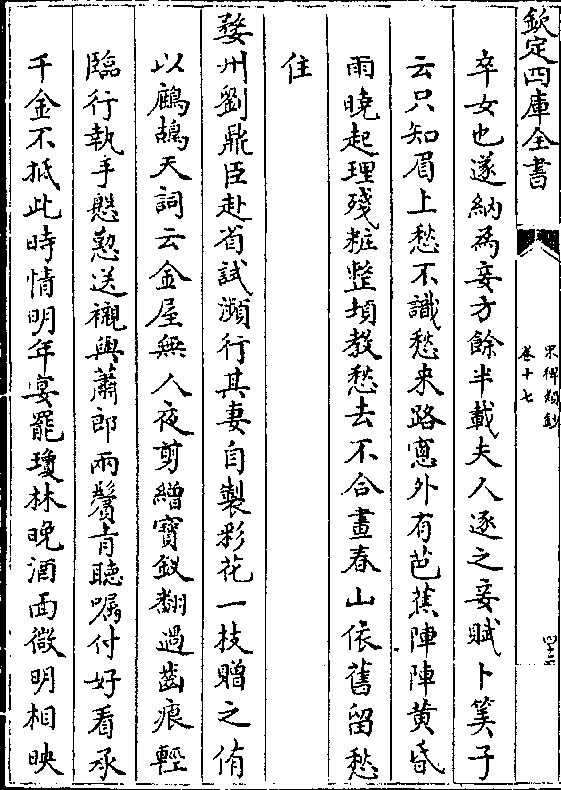 欽定四庫全書
宋稗類鈔
卷十七
四十三
卒女也遂納為妾方餘半載夫人逐之妾賦卜筭子
云只知眉上愁不識愁来路窻外有芭蕉陣陣黄昏
雨曉起理殘粧整頓教愁去不合畫春山依舊留愁
住
婺州劉鼎臣赴省試瀕行其妻自製彩花一技贈之侑
以鷓鴣天詞云金屋無人夜剪繒寶釵翻過齒痕輕
臨行執手慇懃送襯與蕭郎兩鬢青聽囑付好看承
千金不抵此時情明年宴罷瓊林晚酒面微明相映